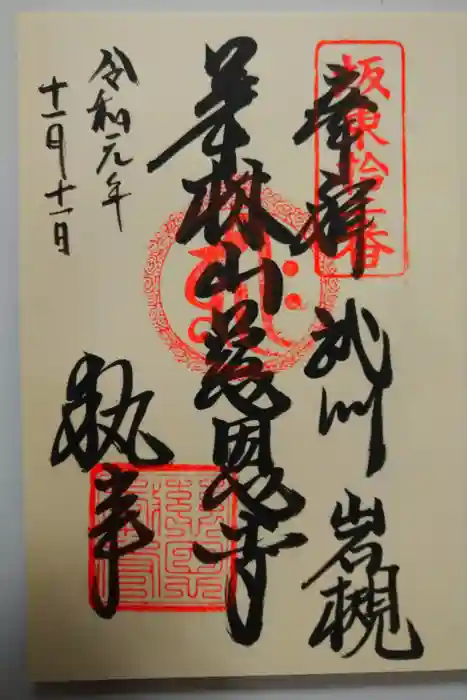 奉拝 武州 岩槻
坂東拾二番
華林山慈恩寺
令和元年
十一月十一日
執事